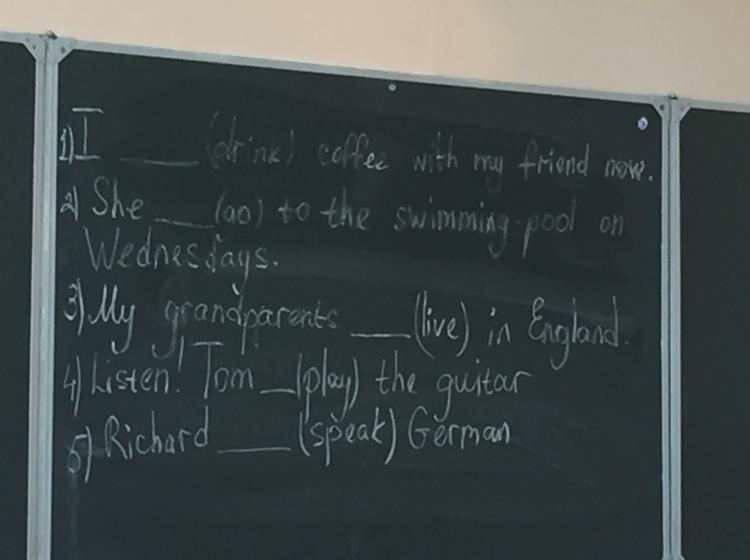 1) I ___ (drink) coffee with my friend now.
2) She ___ (go) to the swimming-pool on
Wednesdays.
3) My grandparents ___ (live) in England.
4) Listen! Tom __ (play) the guitar
5) Richard ___ (speak) German